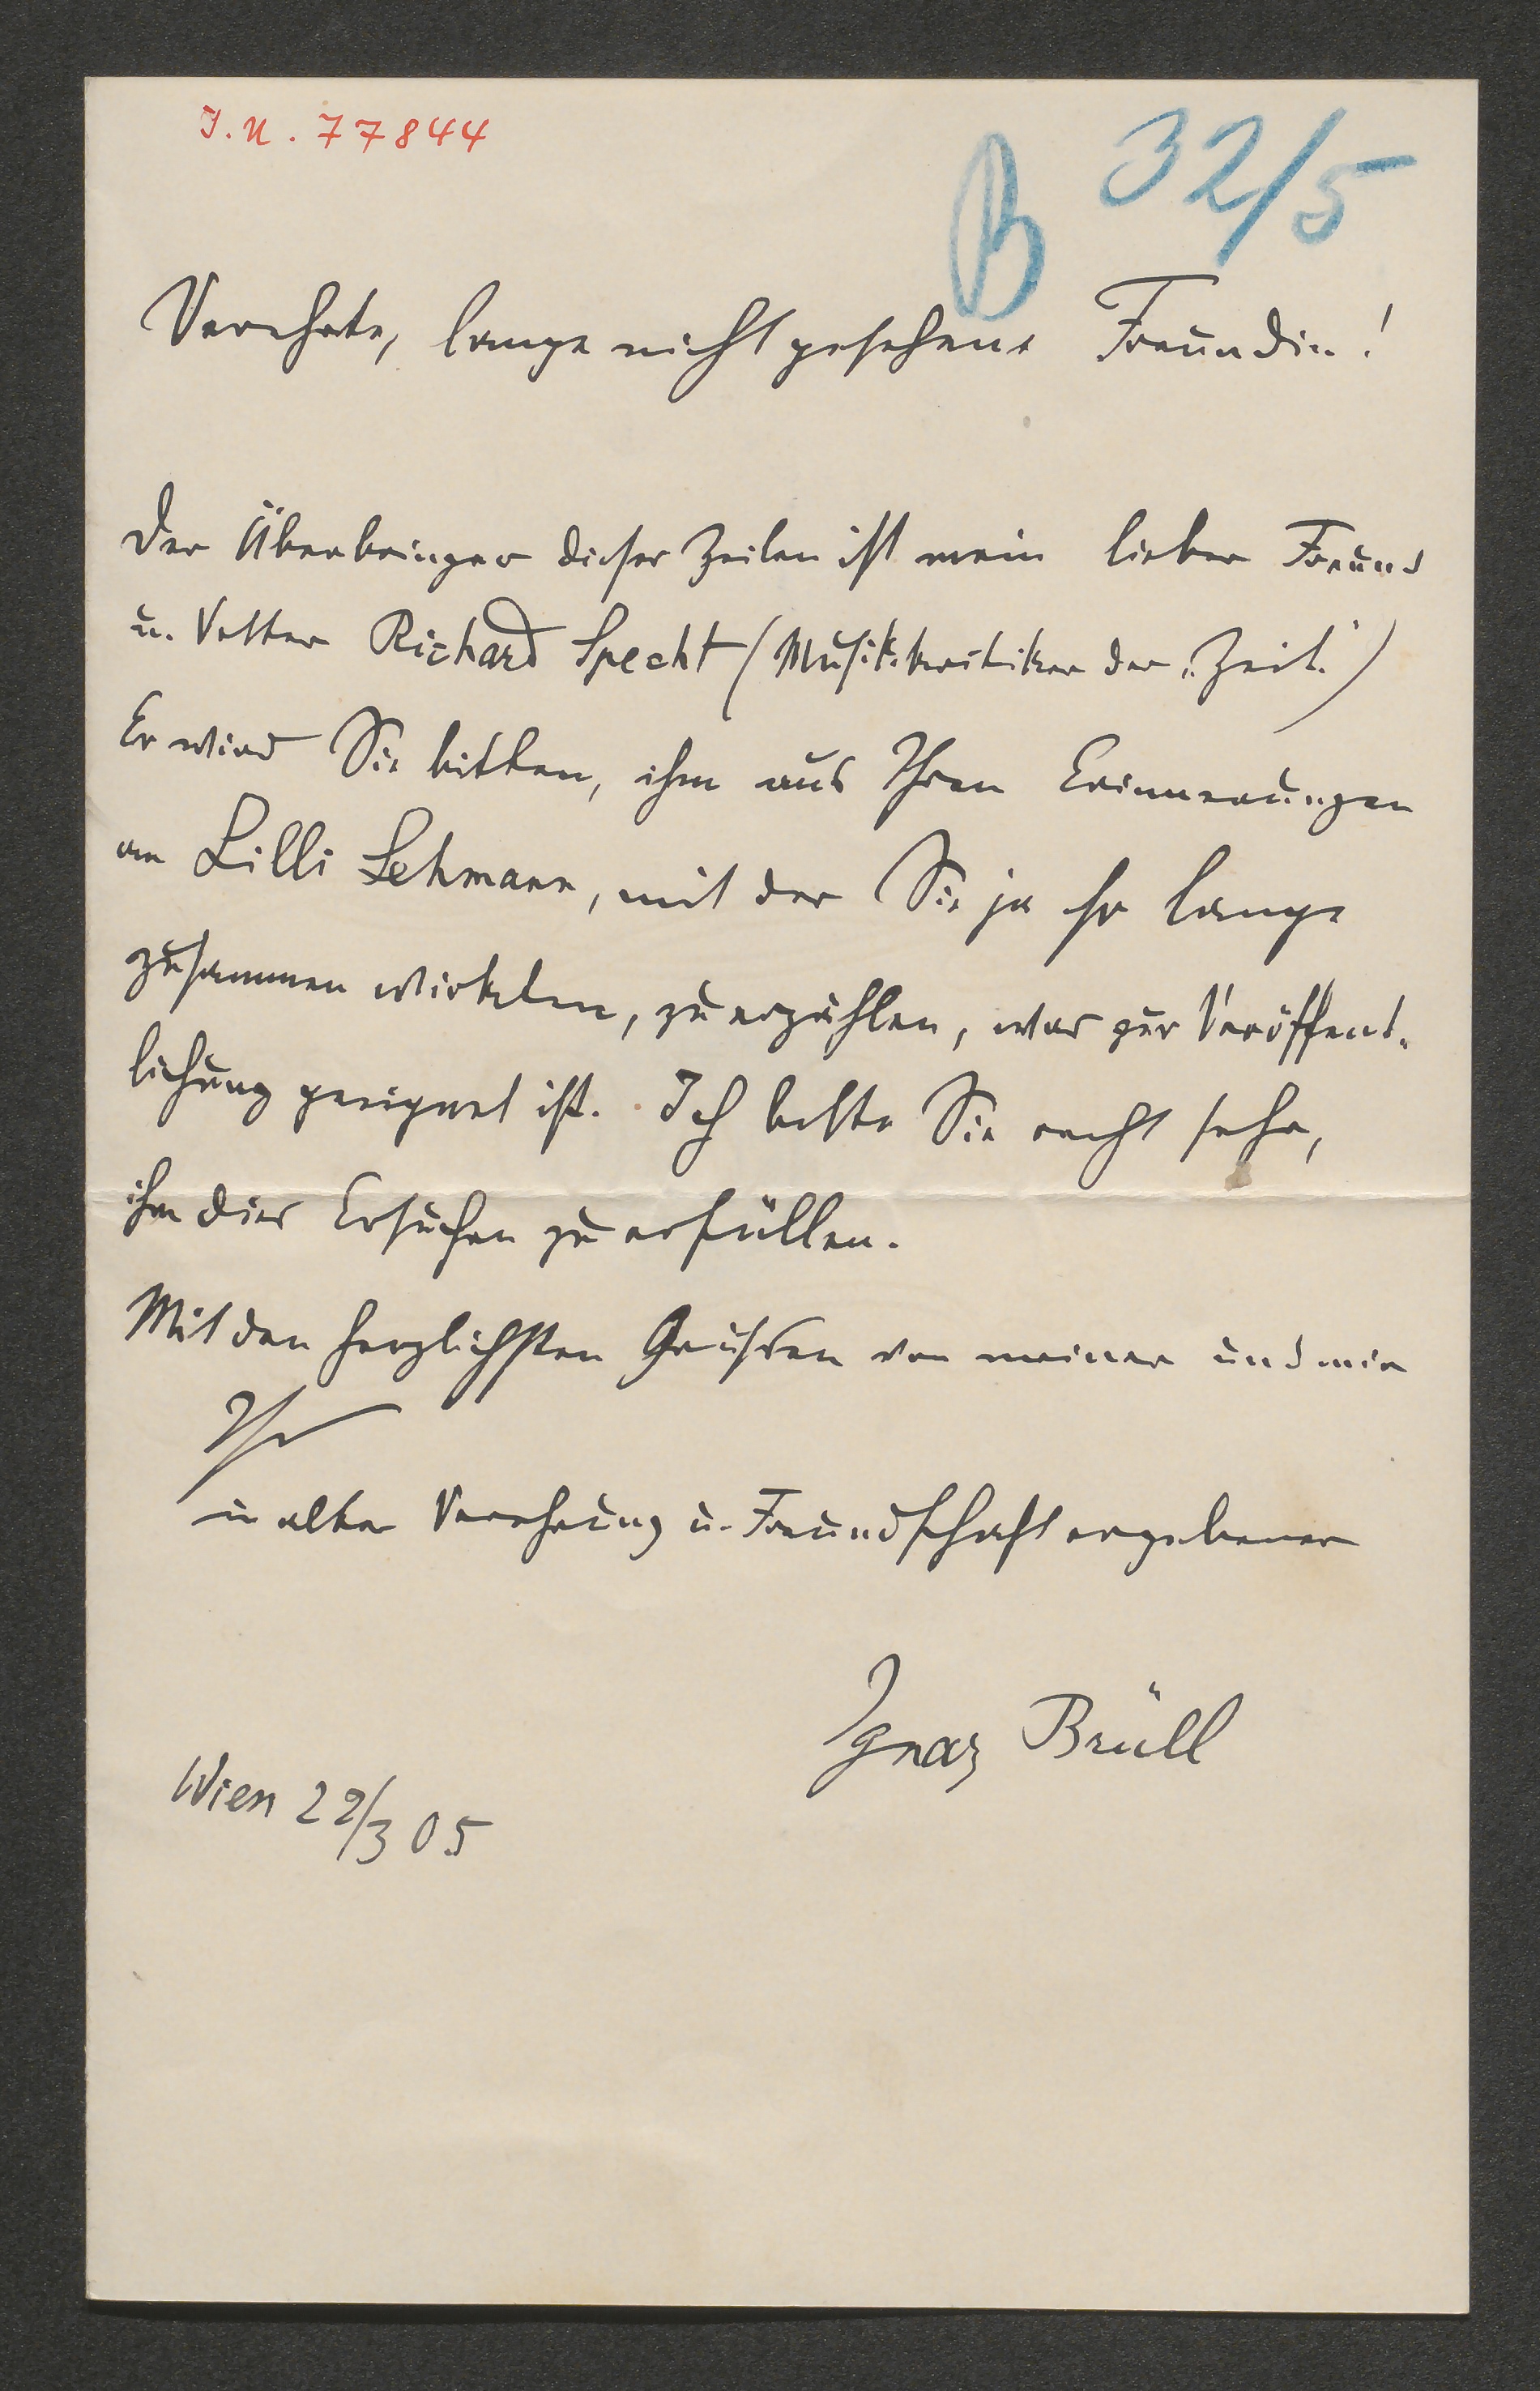 I.N. 77844
B 32/5
Verehrte, lange nicht gesehene Freundin!
Der Überbringer dieser Zeilen ist mein lieber Freund
u. Vetter Richard Specht (Musikkritiker der „Zeit")
Er wird Sie bitten, ihm aus Ihren Erinnerungen
an Lilli Lehmann, mit der Sie ja so lange
zusammen wirkten, zu erzählen, was zur Veröffent-
lichung geeignet ist. Ich bitte Sie recht sehr,
ihm dies Ersuchen zu erfüllen.
Mit den herzlichsten Grüßen von meiner und mir
Ihr
in alter Verehrung u. Freundschaft ergebener
Ignaz Brüll
Wien 22/3 05